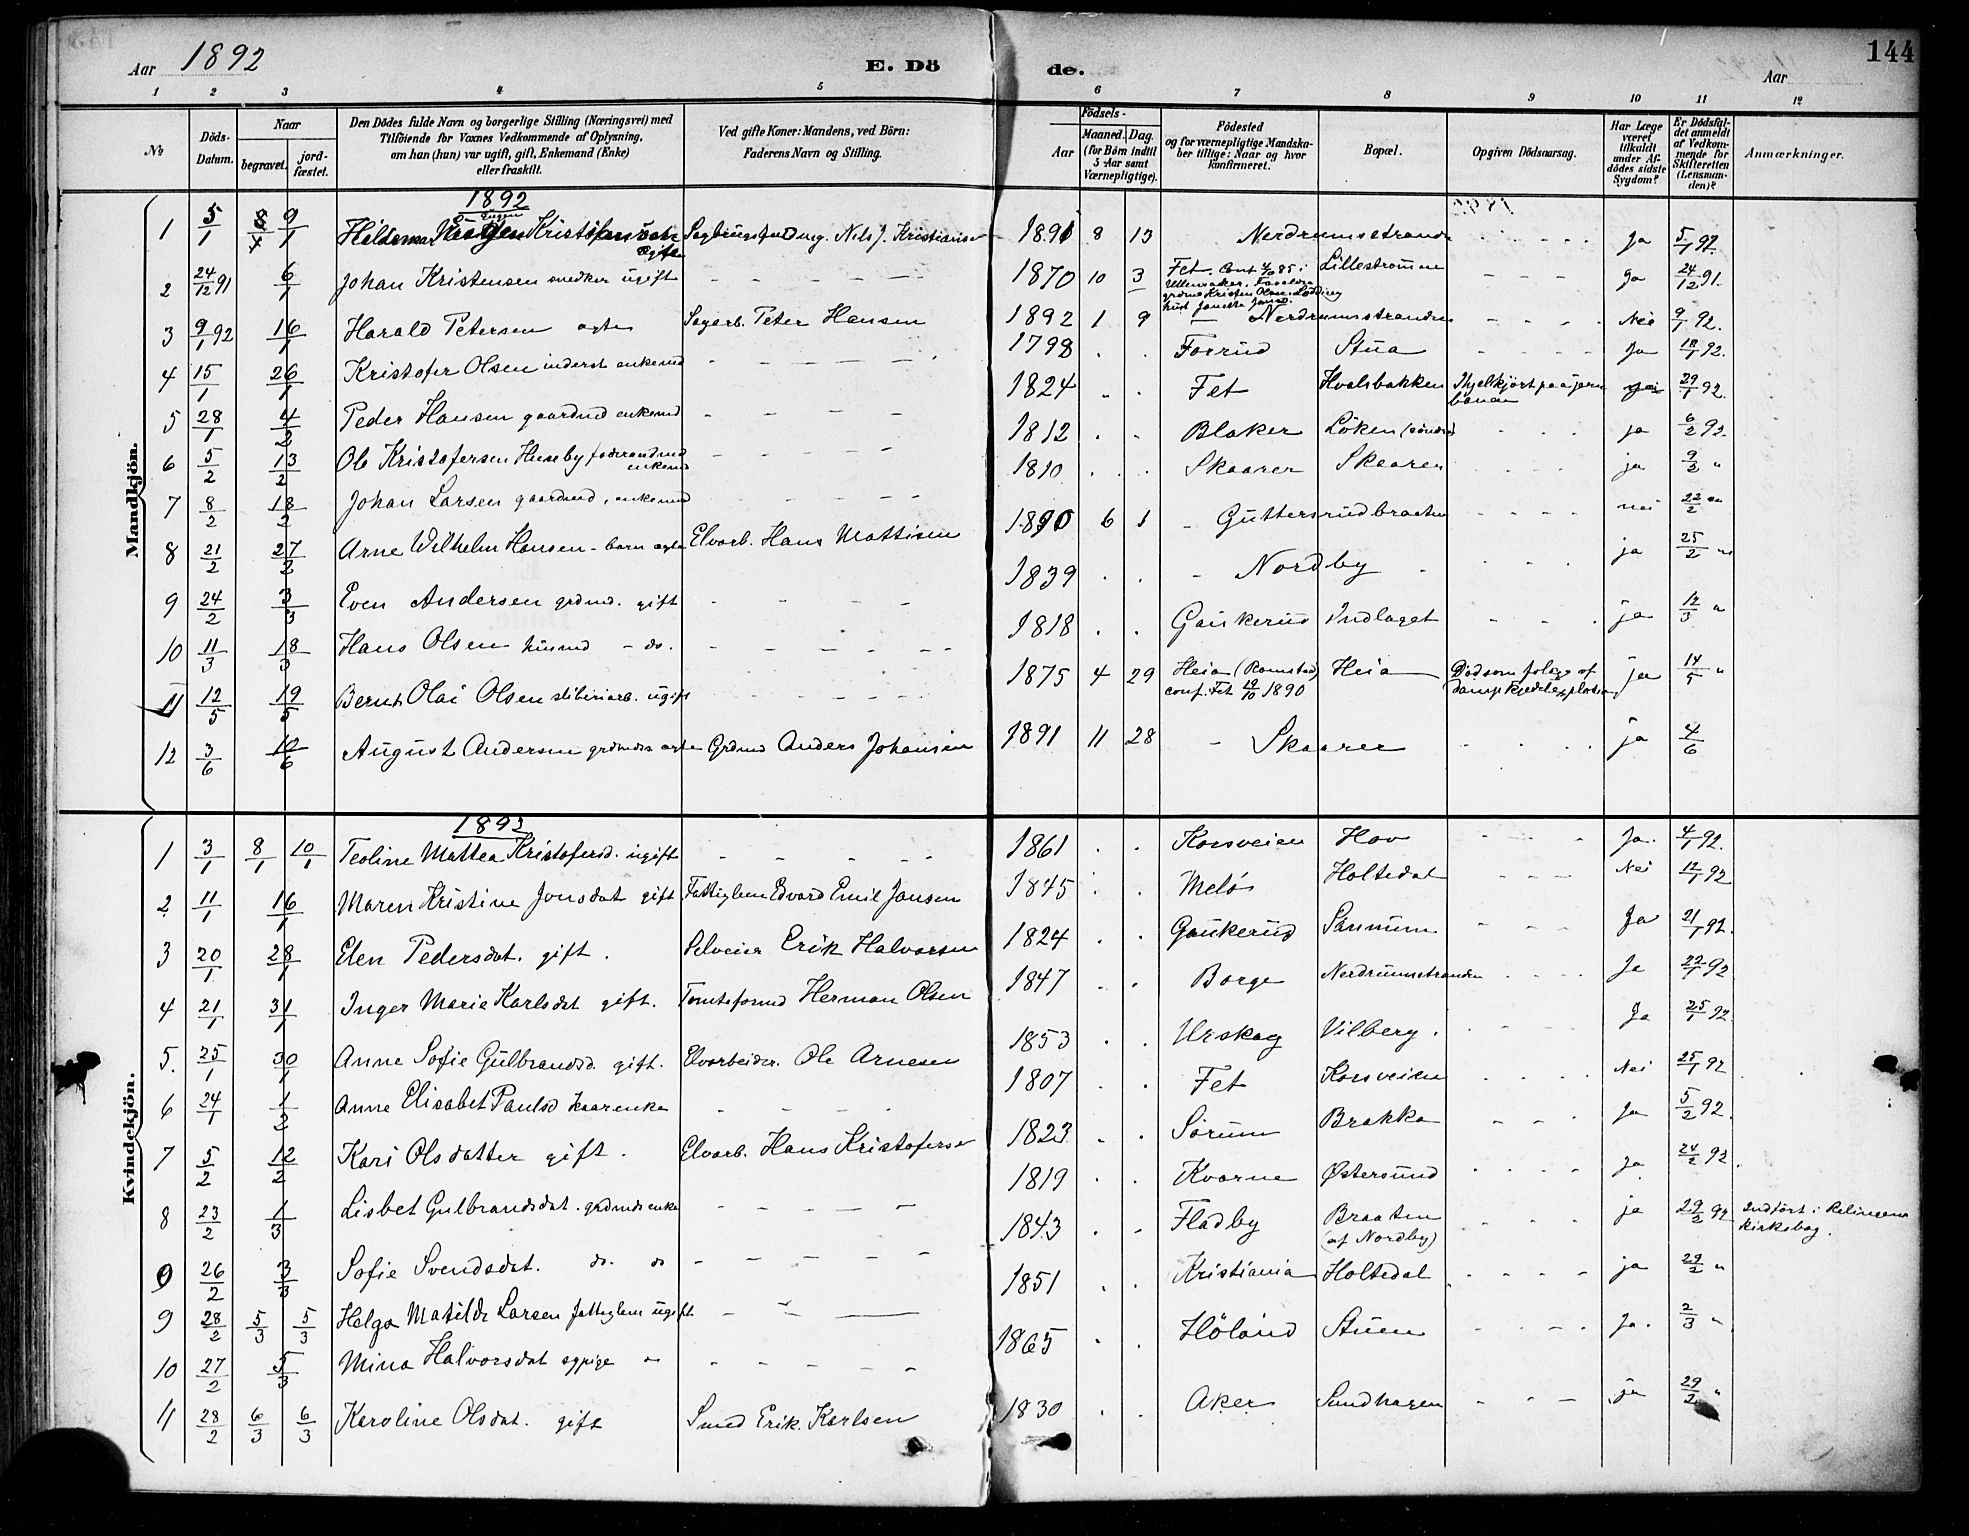 Aar 1892
E. Döde.
144
Aar
1 2 3 4 5 6 7 8 9 10 11 12
No
Döds-Datum.
Naar
begravet.
jordfæstet.
Den Dödes fulde Navn og borgerlige Stilling (Næringsvei) med Tilföiende for Voxnes Vedkommende af Oplysning, om han (hun) var ugift, gift, Enkemand (Enke) eller fraskilt.
Ved gifte Koner: Mandens, ved Börn: Faderens Navn og Stilling.
Födsels-
Aar
Maaned. Dag.
(for Børn indtil 5 Aar samt Værnepligtige).
Födested og for værnepligtige Mandskaber tillige: Naar og hvor konfirmeret.
Bopæl.
Opgiven Dödsaarsag.
Har Læge været tilkaldt under Afdödes sidste Sygdom?
Er Dödsfaldet anmeldt af Vedkommende for Skifteretten (Lensmanden)?
Anmærkninger.
Mandkjön.
1892
1 5/1 9/1 Hildemar Kristiansen ægte Nils J. Kristiansen 1891 8 13 Nerdrumsstranden Ja 5/1 92.
2 24/12 91 6/1 Johan Kristensen snedker ugift 1870 10 3 Fet. Conf 4/10 85 i Lillestrømmen Ja 24/12 91.
3 9/1 92 16/1 Harald Petersen ægte Sagarb. Peter Hansen 1892 1 9 Nerdrumsstranden Nei 9/1 92.
4 15/1 26/1 Kristofer Olsen inderst enkemd 1798 Fosrud Stua Ja 18/1 92.
5 28/1 4/2 Peder Hansen gaardmd enkemd 1824 Fet Hvalsbakken Ihjelkjørt paa jernbanen 29/1 92.
6 5/2 13/2 Ole Kristofersen Huseby føderaadmd enkemd 1812 Blaker Löken (søndre) ja 6/2 92.
7 8/2 18/2 Johan Larsen gaardmd, enkemd 1810 Skaarer Skaarer ja 9/2 "
8 21/2 27/2 Arne Wilhelm Hansen - barn ægte Elvarb. Hans Mattisen 1890 6 1 Guttersrudbraaten nei 22/2 "
9 24/2 3/3 Even Andersen grdmd. gift 1839 Nordby ja 25/2 "
10 11/3 18/3 Hans Olsen husmd - do. 1818 Gaukerud Indlaget ja 12/3 "
11 12/5 19/5 Bernt Olai Olsen sliberiarb. ugift 1875 4 29 Heia (Ramstad) conf. Fet 19/10 1890 Heia Död som fölge af Dampkjedelexplosion ja 14/5 "
12 3/6 12/6 August Andersen grdmds ægte Grdmd Anders Johansen 1891 11 28 Skaarer ja 4/6
Kvindekjön.
1892
1 3/1 8/1 10/1 Teoline Mattea Kristofersd. ugift 1861 Korsveien Hov Ja. 4/1 92.
2 11/1 16/1 Maren Kristine Jonsdat gift Fattiglem Edvard Emil Jansen 1845 Melös Holtedal Nei 12/1 92
3 20/1 28/1 Elen Pedersdat. gift. Selveier Erik Halvorsen 1824 Gaukerud Sannum Ja 21/1 92.
4 21/1 31/1 Inger Marie Karlsdat gift. Herman Olsen 1847 Borge Nerdrumsstranden Ja 22/1 92
5. 25/1 30/1 Anne Sofie Gulbrandsd. gift. Elvarbeider. Ole Arnesen 1853 Urskog Vilberg. Ja 25/1 92.
6 24/1 1/2 Anne Elisabet Paulsd kaarenke 1807 Fet Korsveien Nei 25/1 92
7 5/2 12/2 Kari Olsdatter gift. Elvarb. Hans Kristofersen 1823 Sörum Brakka Ja 5/2 92.
8 23/2 1/3 Lisbet Gulbrandsdat. grdmds enke 1819 Kvarne Østersund Ja 24/2 92.
0 26/2 3/3 Sofie Svendsdat. do. do 1843 Fladby Braaten (af Nordby) ja 29/2 92 Indført i Relingens kirkebog.
9 28/2 5/3 5/3 Helga Matilde Larsen fattiglem ugift 1851 Kristiania Holtedal ja 29/2 "
10 27/2 5/3 Mina Halvorsdat sypige 1865 Höland Stuen Ja. 2/3 "
11 28/2 6/3 6/3 Karoline Olsdat. gift Smed Erik Karlsen 1830 Aker Sundhagen ja 29/2 "